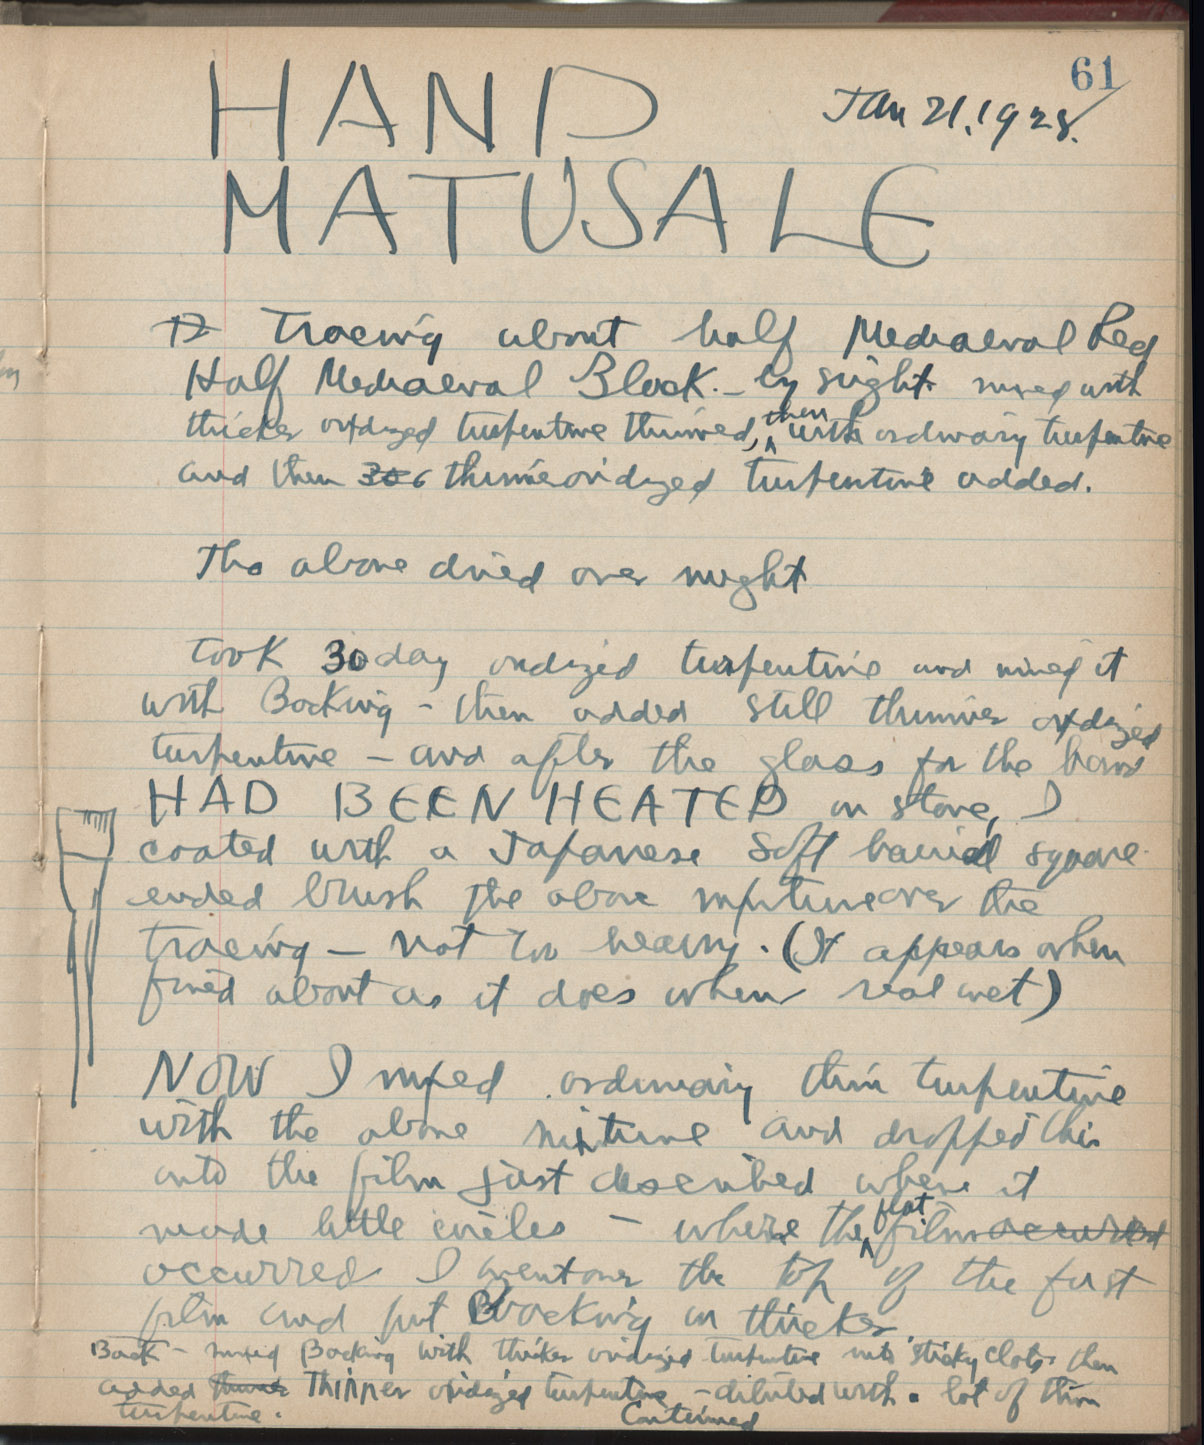 61
Jan 21, 1928.
HAND
MATUSALE
Tracing about half Mediaeval Red
Half Mediaeval Black. - by sight. mixed with
thicker oxidized turpentine thinned, then with ordinary turpentine
and then thinner oxidized turpentine added.
The above dried over night
took 30 day oxidized turpentine and mixed it
with Backing - then added still thinner oxidized
turpentine - and after the glass for the hand
HAD BEEN HEATED on stove, I
coated with a Japanese soft haired square
ended brush the above mixture over the
tracing - not too heavy. (It appears when
fired about as it does when real wet)
NOW I mixed ordinary thin turpentine
with the above mixture and dropped this
onto the film just described where it
made little circles - where the flat film occurred
occurred I went over the top of the first
film and put Backing on thicker.
Back - mixed Backing with thicker oxidized turpentine into sticky clots then
added thinner THINNER oxidized turpentine - diluted with a lot of thin
turpentine.
Continued